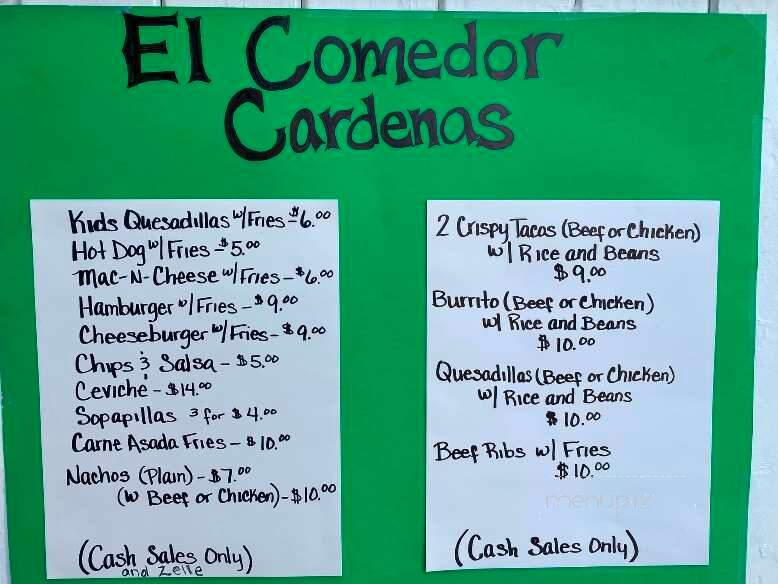 El Comedor
Cardenas
Kids Quesadillas w/Fries - $6.00
Hot Dog w/ Fries - $5.00
Mac-N-Cheese w/Fries - $6.00
Hamburger w/ Fries - $9.00
Cheeseburger w/Fries - $9.00
Chips & Salsa - $5.00
Ceviché - $14.00
Sopapillas 3 for $4.00
Carne Asada Fries - $10.00
Nachos (Plain) - $7.00
(w Beef or Chicken) - $10.00
(Cash Sales Only)
and Zelle
2 Crispy Tacos (Beef or Chicken)
w/ Rice and Beans
$9.00
Burrito (Beef or Chicken)
w/ Rice and Beans
$10.00
Quesadillas (Beef or Chicken)
w/ Rice and Beans
$10.00
Beef Ribs w/ Fries
$10.00
menupix
(Cash Sales Only)